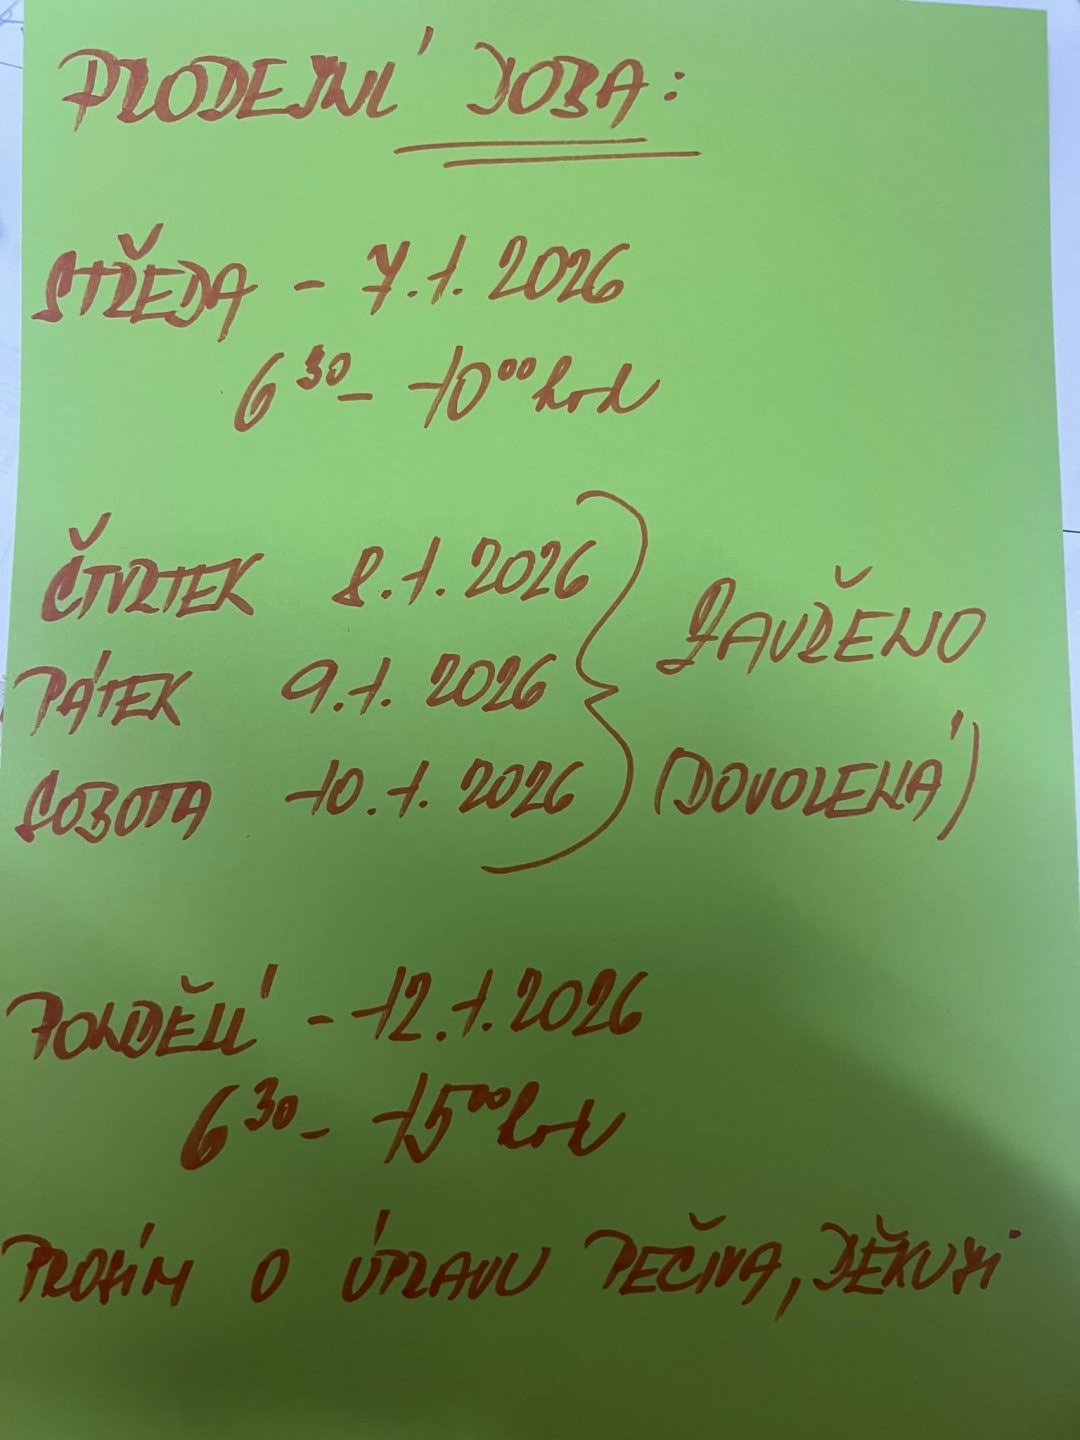 PRODEJNÍ DOBA:
STŘEDA - 7.1.2026
6³⁰ - 10⁰⁰ hod
ČTVRTEK 8.1.2026
PÁTEK 9.1.2026
SOBOTA 10.1.2026
ZAVŘENO
(DOVOLENÁ)
PONDĚLÍ - 12.1.2026
6³⁰ - 15⁰⁰ hod
PROSÍM O ÚPRAVU PEČIVA, DĚKUJI